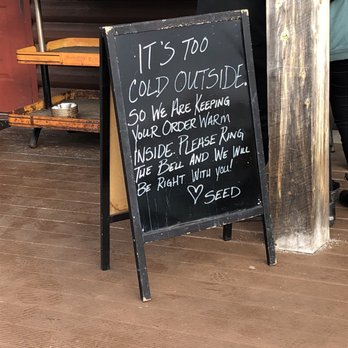 IT'S TOO
COLD OUTSIDE.
SO WE ARE KEEPING
YOUR ORDER WARM
INSIDE. PLEASE RING
THE BELL AND WE WILL
BE RIGHT WITH YOU!
♡ SEED